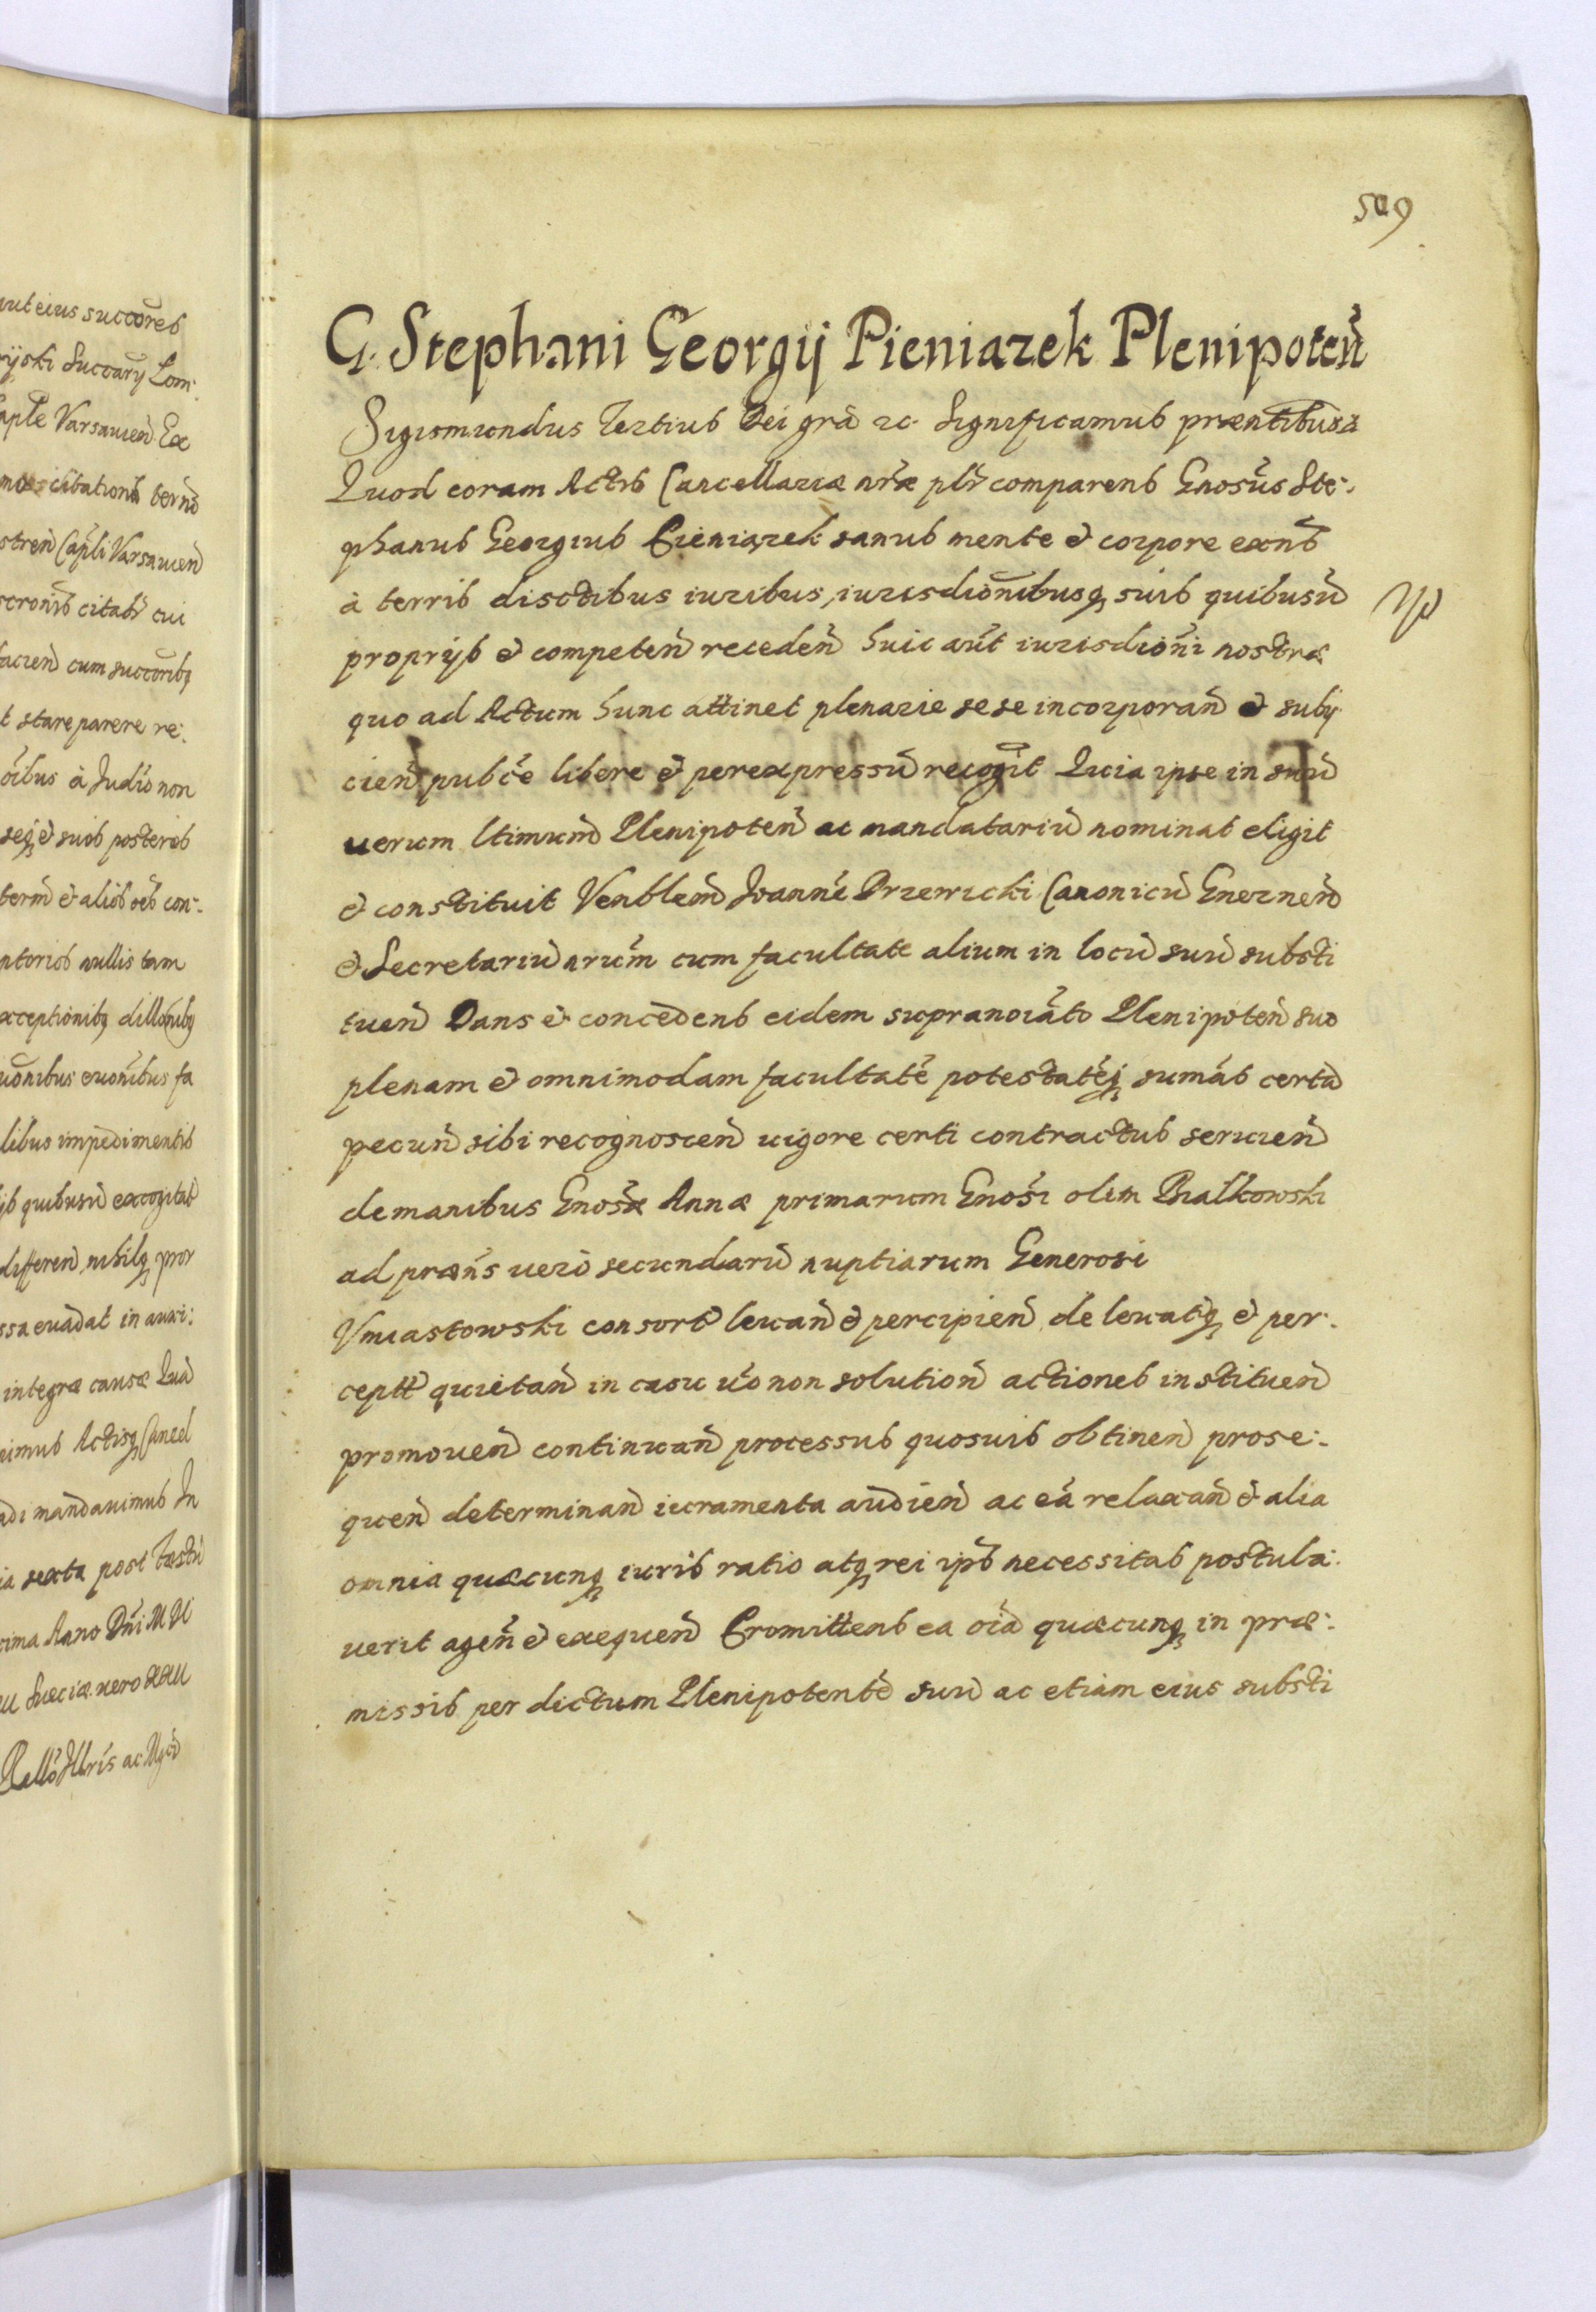 aut eius succores
ryski Succary Lom:
aple Varsauien Ex
citationis
stren Capli Varsauien
citati cui
facien cum succoribq
t stare parere re:
oibus à Judio non
seq et suos posteros
term et alios oes con:
ntorios nullis tam
exceptionibq dillonibq
uonibus euonibus fa
libus impedimentis
ijs quibusu excogitat
differen nihilq pror
ssa euadat in auxi:
integræ causæ Qua
eimus Actisq Cancel
adi mandauimus In
ia sexta post festu
cima Anno Dni M D
Sueciæ vero
Rello Illris ac Mgci
509
G. Stephani Georgij Pieniazek Plenipoten
Sigismundus Tertius Dei gra etc. Significamus præntibus etc
Quod coram Actis Cancellariæ nræ plr comparens Gnosus Ste:
phanus Georgius Pieniązek sanus mente et corpore exns
à terris disctibus iuribus, iurisdionibusq suis quibusu
proprijs et competen receden huic aut iurisdioni nostræ
quo ad Actum hunc attinet plenarie sese incorporan et subij
cien pubce libere et per expressu recogit Quia ipse in suu
uerum ltimum Plenipoten ac mandatariu nominat eligit
et constituit Venblem Joanne Przerucki Canonicu Gneznen
et Secretariu nrum cum facultate alium in locu suu substi
tuen Dans et concedens eidem supranoiato Plenipoten suo
plenam et omnimodam facultate potestateq sumas certa
pecun sibi recognoscen uigore certi contractus seruien
de manibus Gnosæ Annæ primarum Gnosi olim Bialkowski
ad præns uero secundaru nuptiarum Generosi
Vmiastowski consort leuan et percipien de leuatq et per:
ceptt quietan in casu uo non solution actiones instituen
promouen continuan processus quosuis obtinen prose:
quen determinan iuramenta audien ac ea relaxan et alia
omnia quæcunq iuris ratio atq rei ips necessitas postula:
uerit agen et exequen Promittens ea oia quæcunq in præ:
missis per dictum Plenipotente suu ac etiam eius substi